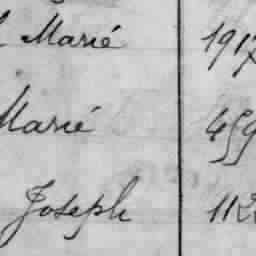 Marié 191
Marié 459
Joseph 112